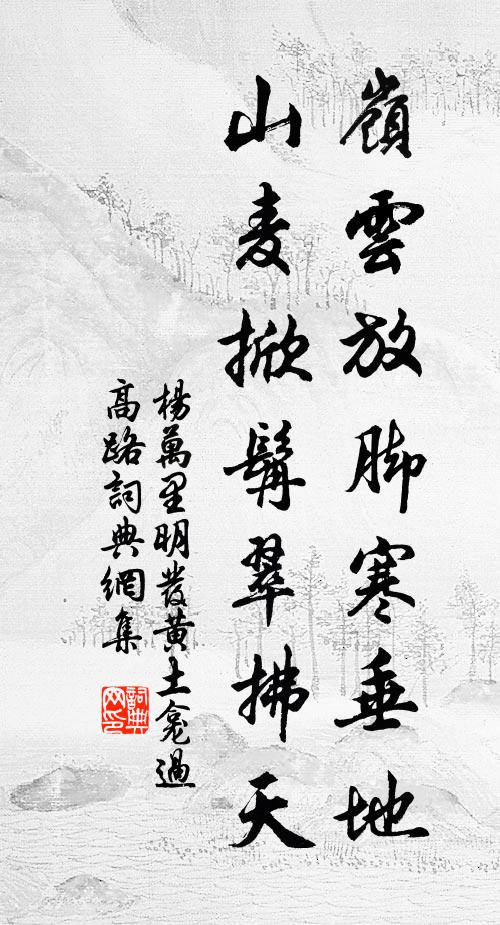 嶺雲放脚寒垂地
山麦掀髯翠拂天
楊萬里明發黄土龛過
高路詞典網集
詞典
网印